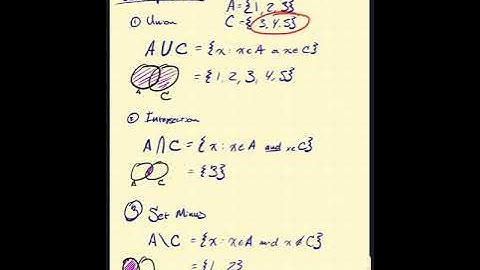 A = {1, 2, 3}
① Union
C = {3, 4, 5}
A ∪ C = {x : x ∈ A or x ∈ C}
= {1, 2, 3, 4, 5}
A C
② Intersection
A ∩ C = {x : x ∈ A and x ∈ C}
= {3}
A C
③ Set Minus
A \ C = {x : x ∈ A and x ∉ C}
= {1, 2}